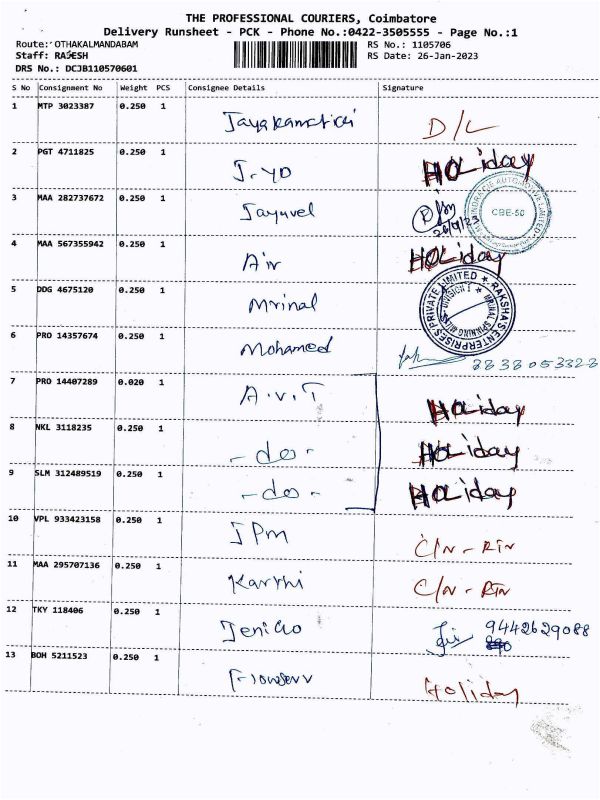 THE PROFESSIONAL COURIERS, Coimbatore
Delivery Runsheet - PCK - Phone No.:0422-3505555 - Page No.:1
Route: OTHAKALMANDABAM RS No.: 1105706
Staff: RAJESH RS Date: 26-Jan-2023
DRS No.: DCJB110570601
S No Consignment No Weight PCS Consignee Details Signature
1 MTP 3023387 0.250 1 D/L
2 PGT 4711825 0.250 1 Holiday
3 MAA 282737672 0.250 1 Jayuvel
CBE-50
4 MAA 567355942 0.250 1 Air Holiday
5 DDG 4675120 0.250 1 Mrinal
RAKSHA'S ENTERPRISES PRIVATE LIMITED
MRINAL SPINNING MILLS DIVISION I
6 PRO 14357674 0.250 1 Mohamed
7 PRO 14407289 0.020 1 A.V.T Holiday
8 NKL 3118235 0.250 1 - do - Holiday
9 SLM 312489519 0.250 1 - do - Holiday
10 VPL 933423158 0.250 1 JPM C/N - RTN
11 MAA 295707136 0.250 1 Karthi C/N - RTN
12 TKY 118406 0.250 1 9442629088
13 BOH 5211523 0.250 1 Holiday